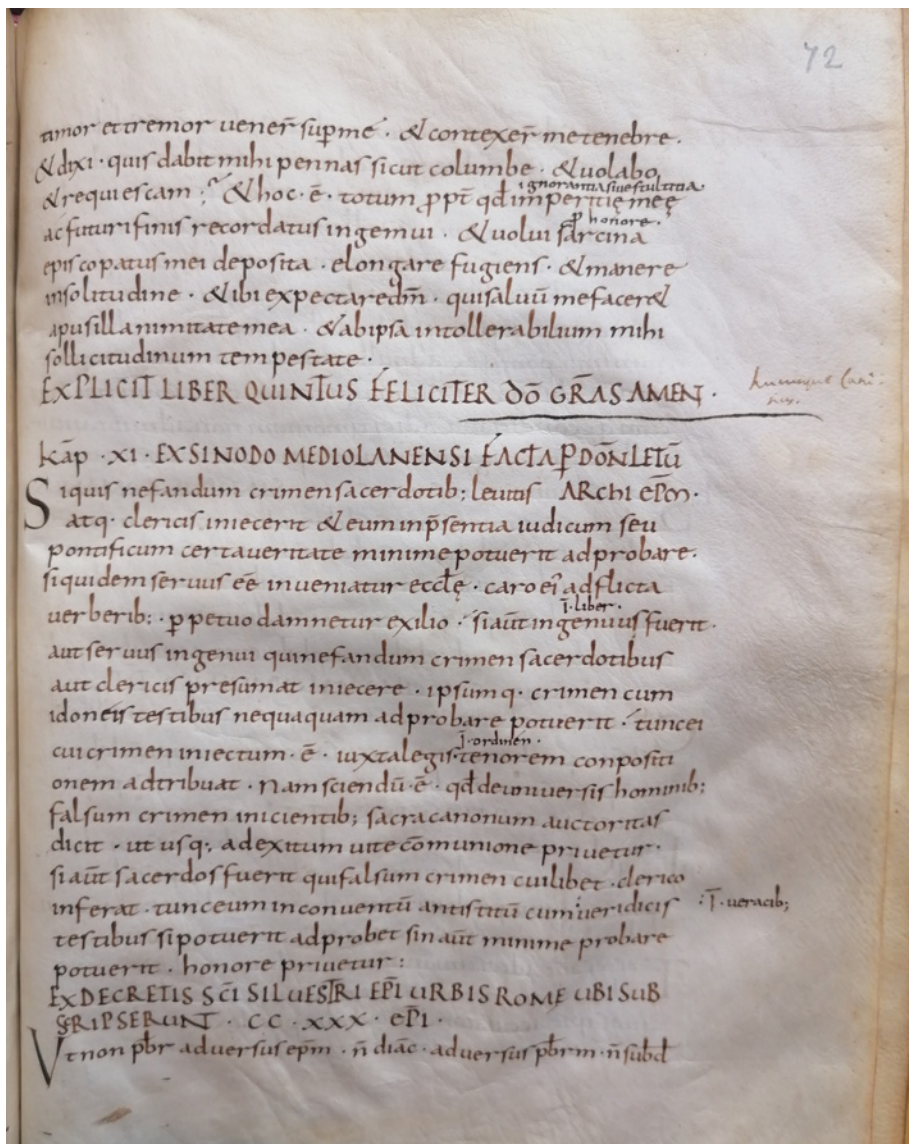 72
timor et tremor uener̄ sup̱ me · & contexer̄ me tenebre ·
& dixi · quis dabit mihi pennas sicut columbe · & uolabo
& requiescam · & hoc · ē · totum ꝓpt̄ qd̄ imperitię meę
ignorantia siue stultitia
ac futuri finis recordatus ingemui · & uolui sarcina
ꝓ honore ·
episcopatus mei deposita · elongare fugiens · & manere
insolitudine · & ibi expectare dm̄ · qui saluū me facer&
apusillanimitate mea · & abipsa intollerabilium mihi
sollicitudinum tempestate ·
EXPLICIT LIBER QUINTUS FELICITER DŌ GRAS̄ AMEN ·
kāp · XI · EX SINODO MEDIOLANENSI FACTA P̱ DŌN LETŪ
ARChI EPM̄ ·
Siquis nefandum crimen sacerdotib; leuitis
atq· clericis iniecerit & eum inp̄sentia iudicum seu
pontificum certa ueritate minime potuerit adprobare ·
siquidem seruus eē inueniatur eccłę · caro ei adflicta
uerberib; · p̱petuo damnetur exilio · si aūt ingenuus fuerit ·
ī · liber ·
aut seruus ingenui qui nefandum crimen sacerdotibus
aut clericis presumat iniecere · ipsumq· crimen cum
idoneis testibus nequaquam adprobare potuerit · tunc ei
cui crimen iniectum · ē · iuxta legis tenorem conpositi
ī · ordinen ·
onem adtribuat · Nam sciendū · ē · qd̄ deuniuersis hominib;
falsum crimen inicientib; sacra canonum auctoritas
dicit · ut usq· adexitum uite cōmunione priuetur ·
si aūt sacerdos fuerit qui falsum crimen cuilibet clerico
inferat · tunc eum inconuentū antistitū cum ueridicis
· ī · ueracib;
testibus si potuerit adprobet sin aūt minime probare
potuerit · honore priuetur :
EX DECRETIS SC̄I SILUESTRI EP̄I URBIS ROME UBI SUB
SCRIPSERUNT · CC · XXX · EP̄I ·
Vt non pb̄r aduersus ep̄m · n̄ diāc · aduersus pb̄rm · n̄ subd̄